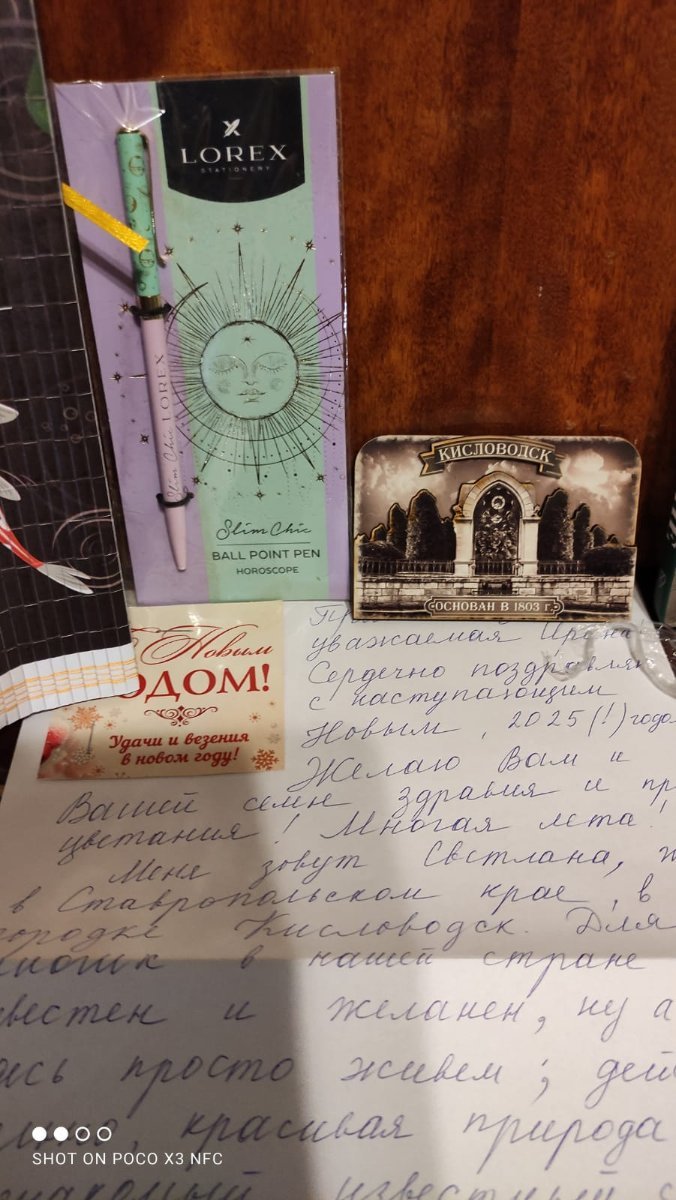 LOREX
STATIONERY
Slim Chic LOREX
Slim Chic
BALL POINT PEN
HOROSCOPE
КИСЛОВОДСК
ОСНОВАН В 1803 г.
Новым
ОДОМ!
Удачи и везения
в новом году!
уважаемая Ирена
Сердечно поздравля
с наступающим
Новым, 2025(!) года
Желаю Вам и
Вашей семье здравия и пр
цветания! Многая лета!
Меня зовут Светлана, ж
в Ставропольском крае, в
городке Кисловодск. Для
многих в нашей стране
вестен и желанен, ну а
десь просто живем; дей
красивая природа
известный
SHOT ON POCO X3 NFC